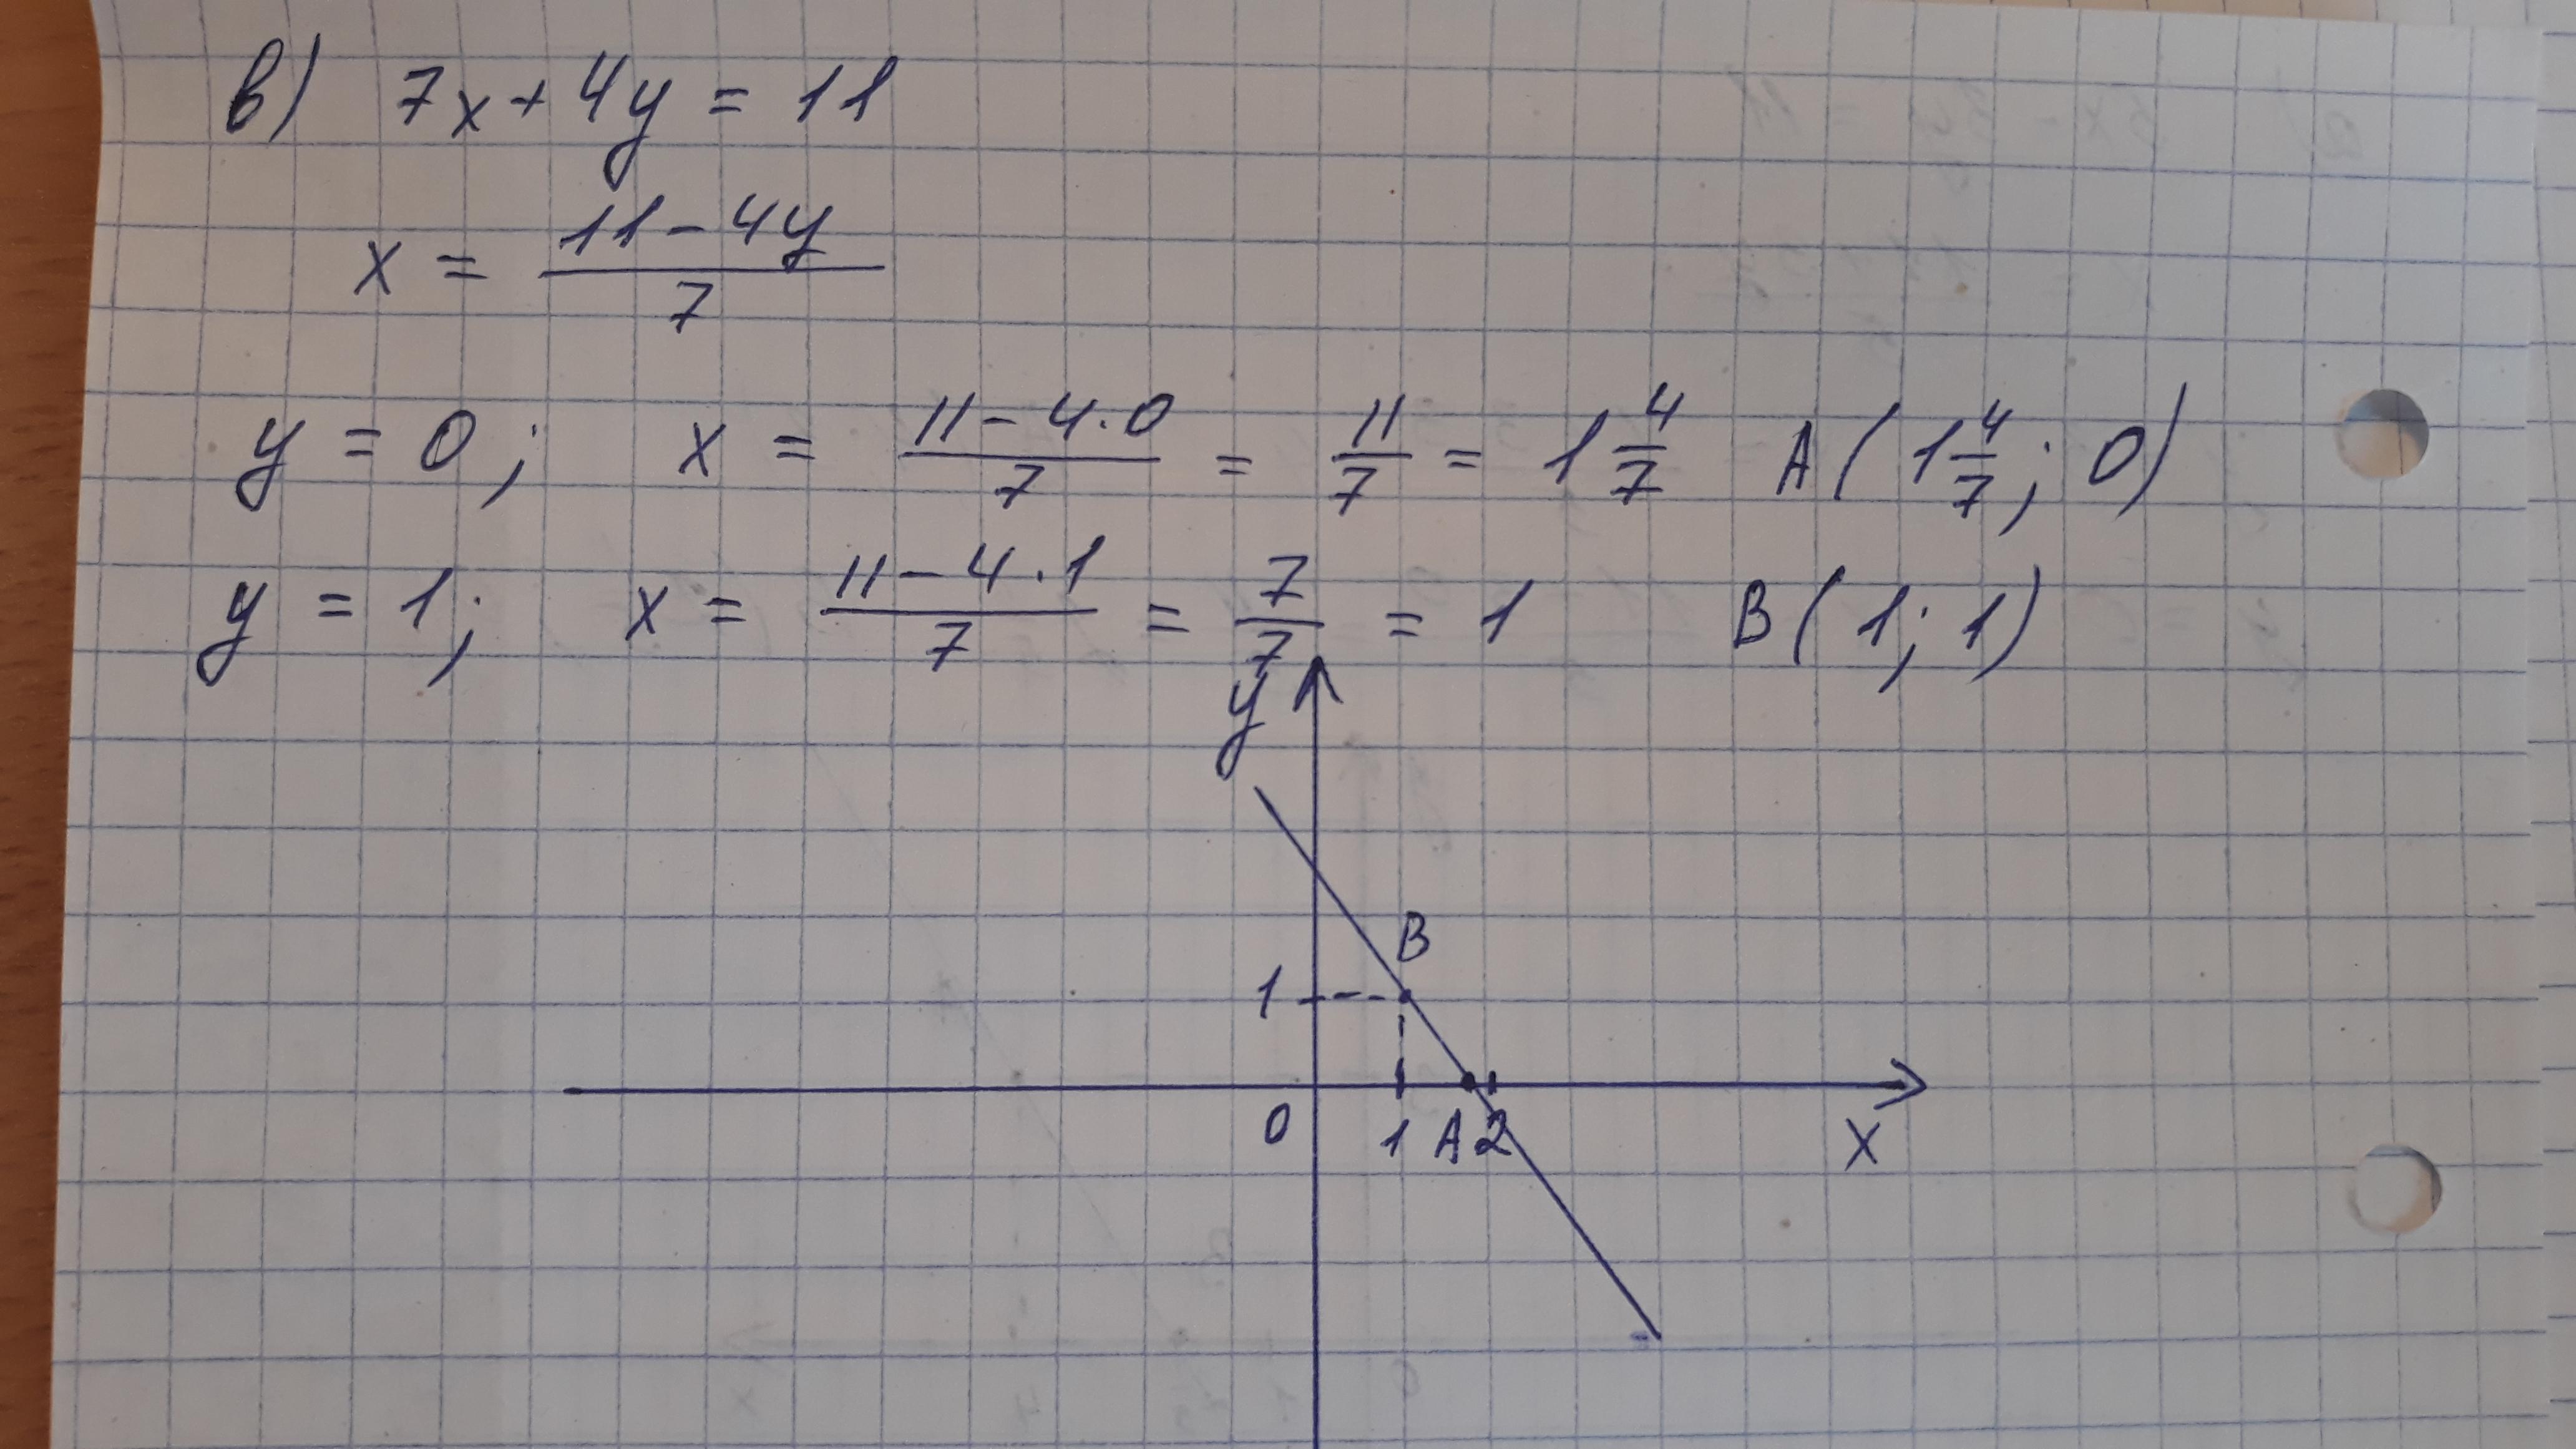 в) 7x + 4y = 11
x = (11 - 4y)/7
y = 0; x = (11 - 4·0)/7 = 11/7 = 1 4/7 A(1 4/7; 0)
y = 1; x = (11 - 4·1)/7 = 7/7 = 1 B(1; 1)
y
B
1
0 1 A 2 x